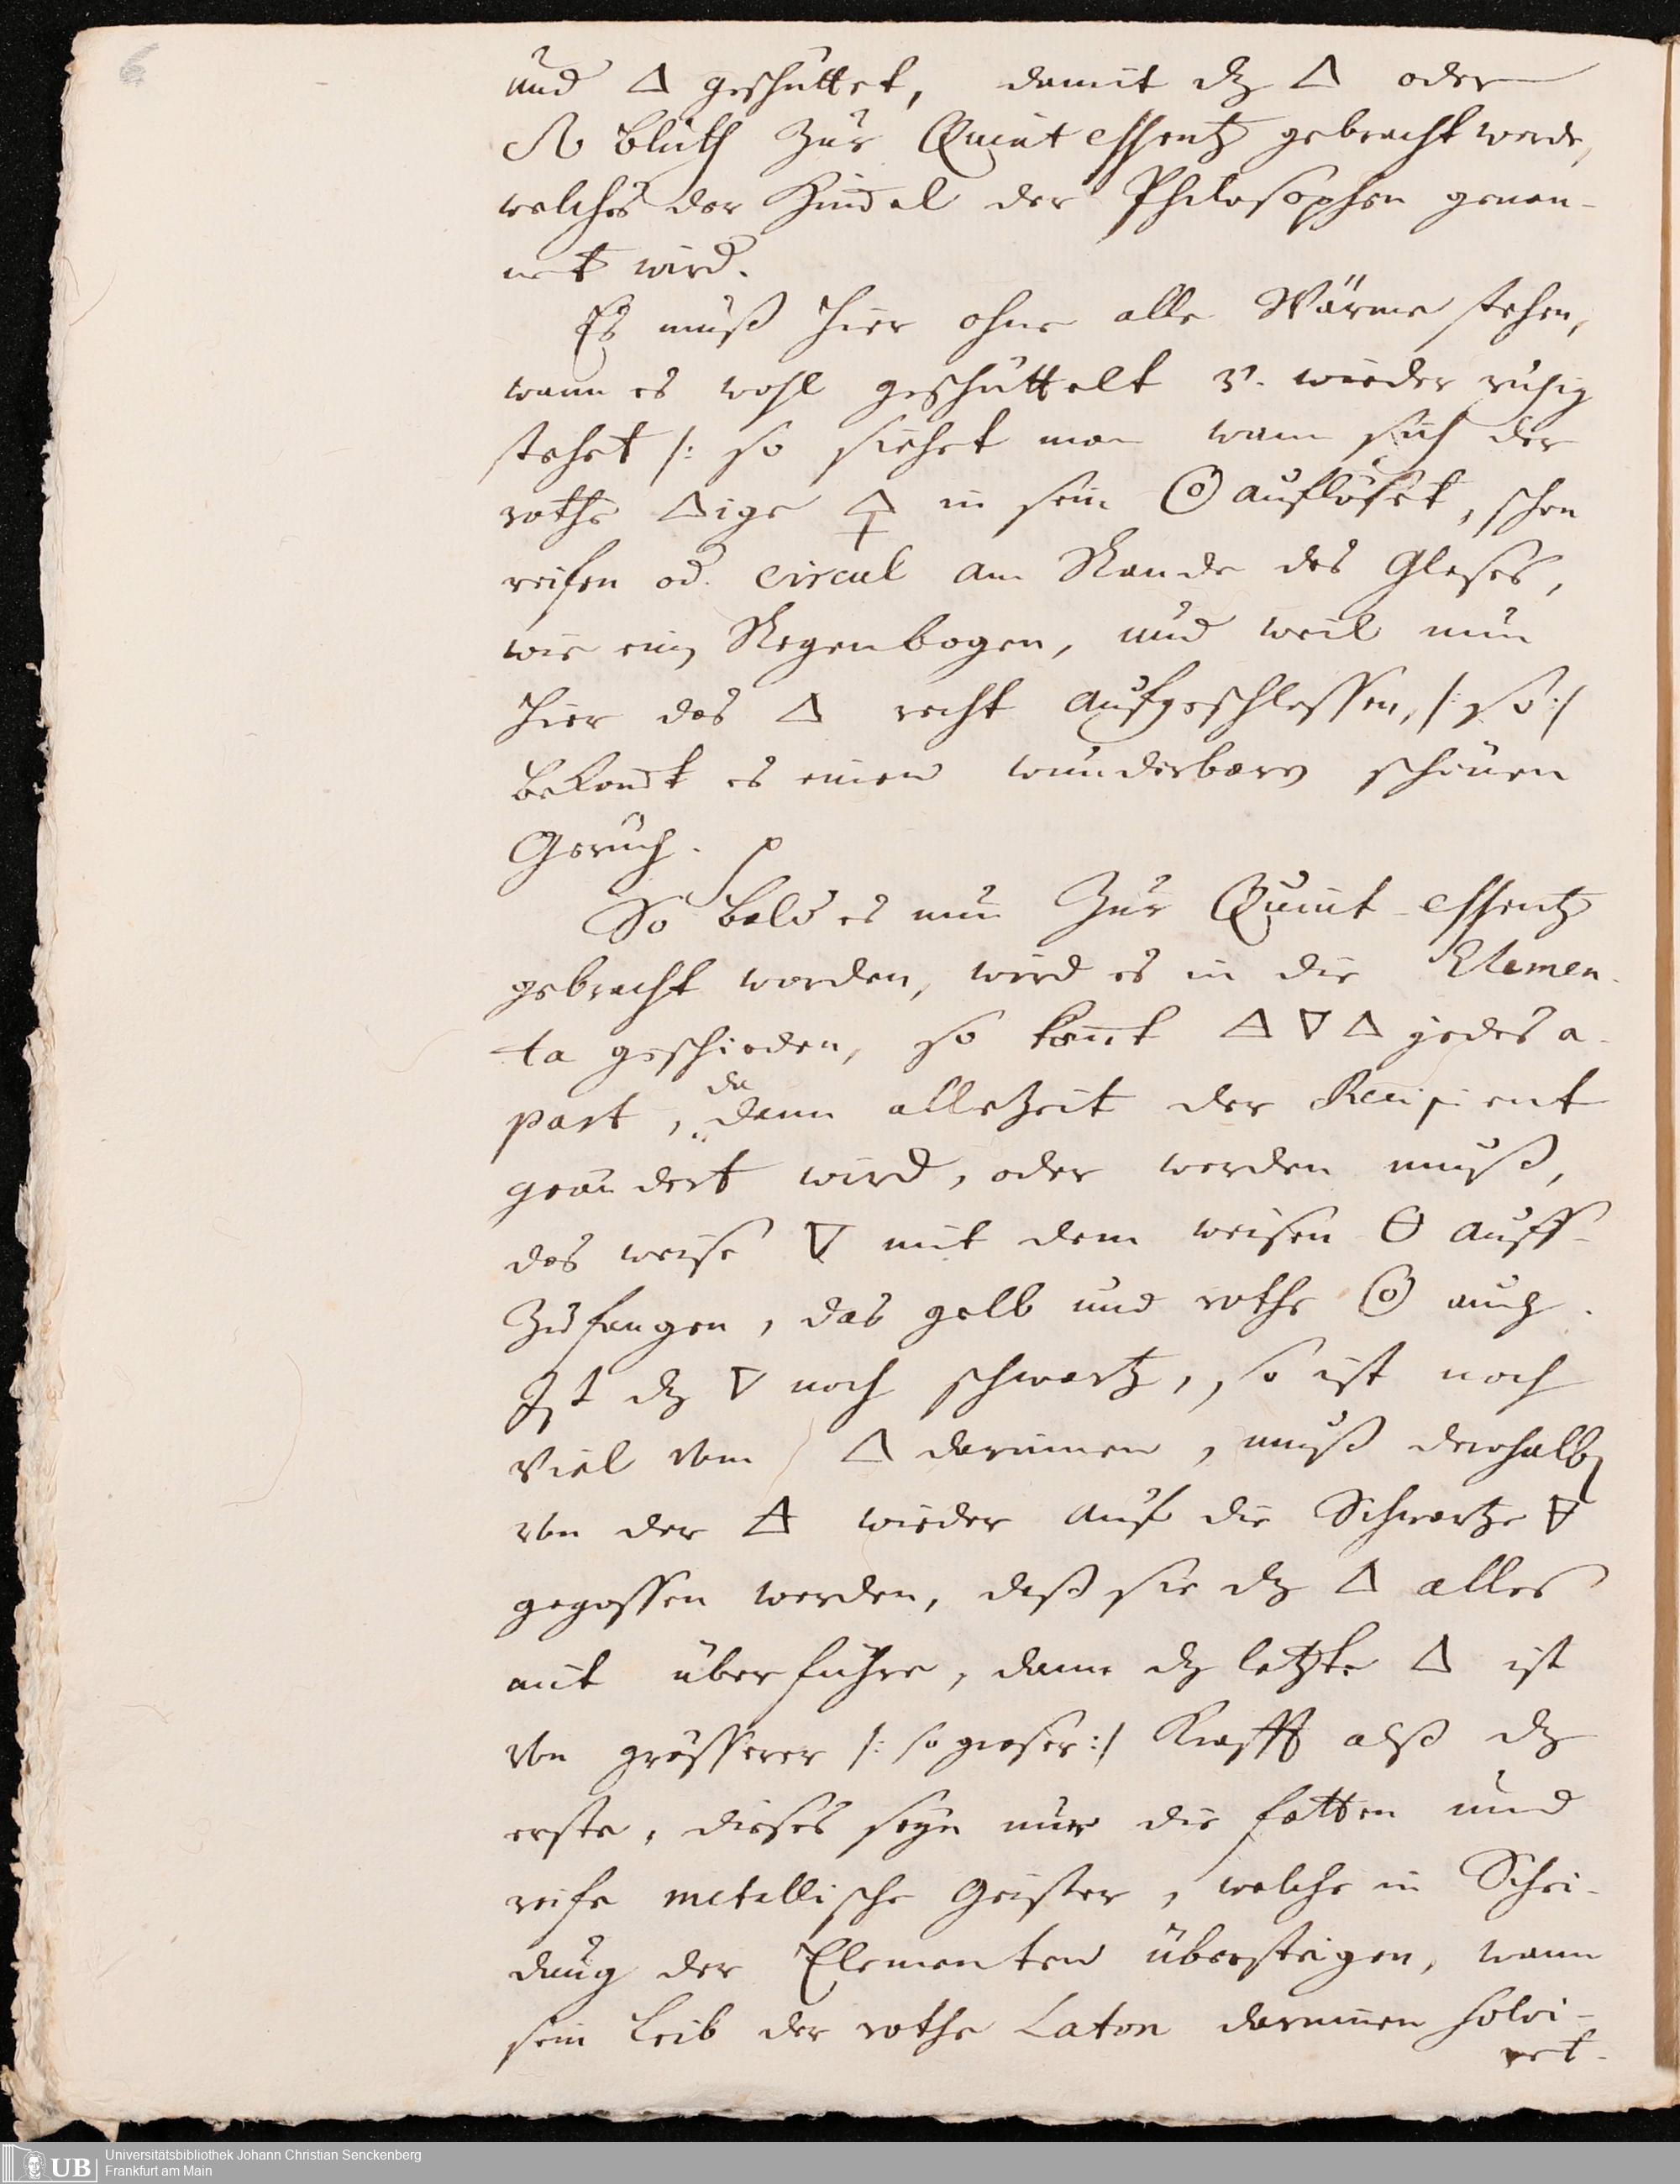 6
und 🜂 geschüttet, damit dz 🜂 oder
Blüth zur Quint essentz gebracht werde,
welches der Himel der Philosophen genen-
net wird.
Es muß hier ohne alle Wärme stehen,
wann es wohl geschüttelt v. wieder ruhig
stehet /: so siehet man wann sich der
rothe 🜂ige 🜍 in sein auflöset, schon
reifen od. Circul am Rande des Glases,
wie ein Regenbogen, und weil nun
hier das 🜂 recht aufgeschlossen, /: so :/
bekomt es einen wunderbarn schönen
Geruch.
So bald es nun zur Quint-essentz
gebracht worden, wird es in die Elemen-
ta geschieden, so komt 🜁 🜄 🜂 jedes a-
part, da dann allezeit der Recipient
geändert wird, oder werden muß,
das weise 🜄 mit dem weisen 🜔 auff-
zufangen, das gelb und rothe auch.
Ist dz 🜄 noch schwartz, so ist noch
viel vom 🜂 darinnen, muß derhalben
von der 🜁 wieder auf die Schwartze 🜃
gegossen werden, daß sie dz 🜂 alles
mit überführe, dann dz letzte 🜂 ist
von grösserer /: so groser :/ Krafft alß dz
erste, dieses seyn nur die fetten und
reife metallische Geister, welche in Schei-
dung der Elementen übersteigen, wann
sein Leib der rothe Laton darinnen solvi-
ret-
UB Universitätsbibliothek Johann Christian Senckenberg
Frankfurt am Main